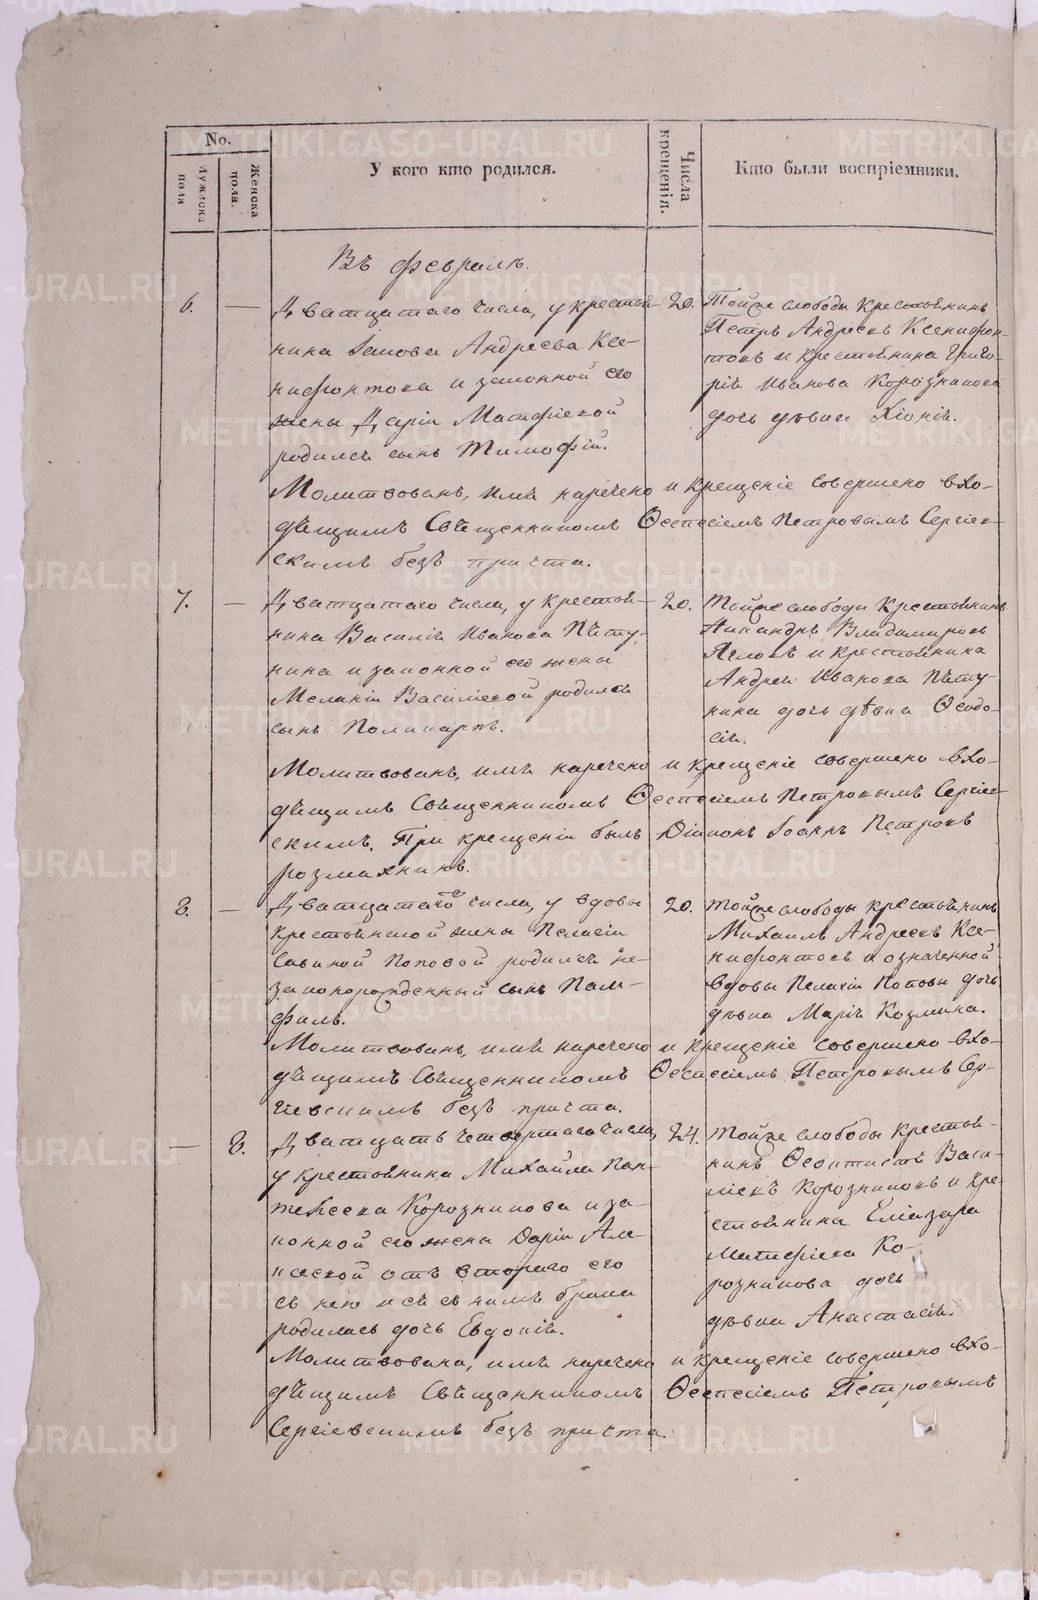 No.
Мужеска пола
Женска пола.
У кого кто родился.
Числа крещенія.
Кто были воспріемники.
Въ февралѣ.
6. — Дватцатаго числа, у крестья-
нина Іакова Андреева Ксе-
нифонтова и законной его
жены Даріи Матфіевой
родился сынъ Тимофій.
20. Тойже слободы крестьянинъ
Петръ Андреевъ Ксенифон-
товъ и крестьянина Григо-
рія Иванова Корозникова
дочь дѣвка Хіонія.
Молитвованъ, имя наречено и крещеніе совершено вхо-
дящимъ Священникомъ Петровымъ Сергіев-
скимъ безъ причта.
7. — Дватцатаго числа, у крестья-
нина Василія Иванова Пѣту-
нина и законной его жены
Меланіи Василіевой родился
сынъ Поликарпъ.
20. Тойже слободы крестьянинъ
Никандръ Владимировъ
и крестьянина
Андрея Иванова Пѣту-
нина дочь дѣвка Ѳеодо-
сія.
Молитвованъ, имя наречено и крещеніе совершено вхо-
дящимъ Священникомъ Петровымъ Сергіев-
скимъ. При крещеніи былъ Діаконъ Іоаннъ Петровъ
розмахнинъ.
8. — Дватцатаго числа, у вдовы
крестьянской жены Пелагіи
Савиной Поповой родился не-
законорожденный сынъ Пам-
филъ.
20. Тойже слободы крестьянинъ
Михаилъ Андреевъ Ксе-
нифонтовъ и означенной
вдовы Пелагіи Поповы дочь
дѣвка Марія Козмина.
Молитвованъ, имя наречено и крещеніе совершено вхо-
дящимъ Священникомъ Петровымъ Сер-
гіевскимъ безъ причта.
— 8. Дватцать четвертаго числа,
у крестьянина Михайла Пан-
телѣева Корозникова и за-
конной его жены Даріи Але-
ксѣевой отъ втораго его
съ нею и ея съ нимъ брака
родилась дочь Евдокія.
24. Тойже слободы крестья-
нинъ Ѳеоктистъ Васи-
ліевъ Корозниковъ и кре-
стьянина Еліазара
Матфіева Ко-
розникова дочь
дѣвка Анастасія.
Молитвована, имя наречено и крещеніе совершено вхо-
дящимъ Священникомъ Петровымъ
Сергіевскимъ безъ причта.
METRIKI.GASO-URAL.RU